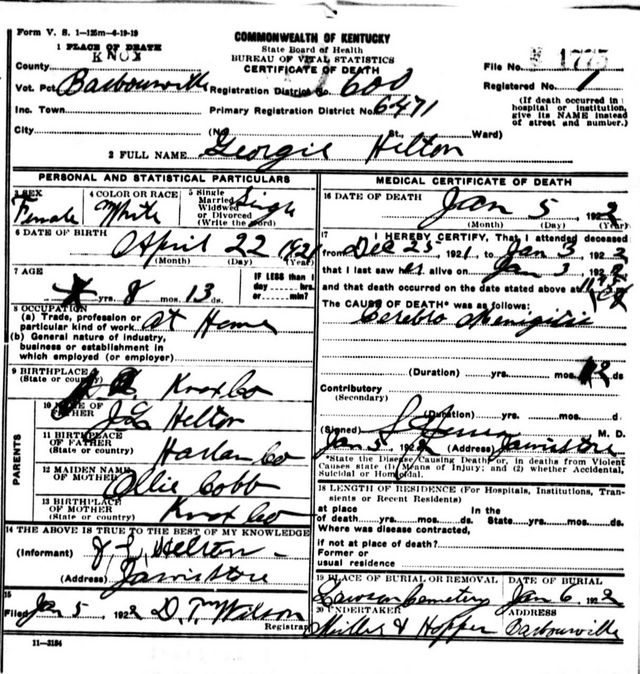 Form V. S. 1—125m—6-19-19
1 PLACE OF DEATH
COMMONWEALTH OF KENTUCKY
State Board of Health
BUREAU OF VITAL STATISTICS
CERTIFICATE OF DEATH
County KNOX
File No. 1775
Vot. Pct. Barbourville
Registration District No. 600
Registered No. 1
Inc. Town
Primary Registration District No. 6471
(If death occurred in hospital or institution, give its NAME instead of street and number.)
City
(No. St., Ward)
2 FULL NAME Georgie Helton
PERSONAL AND STATISTICAL PARTICULARS
3 SEX Female
4 COLOR OR RACE White
5 Single Married Widowed or Divorced (Write the word) Single
6 DATE OF BIRTH April 22
(Month) (Day) (Year)
7 AGE yrs. 8 mos. 13 ds.
IF LESS than 1 day hrs. or min.
8 OCCUPATION
(a) Trade, profession or particular kind of work At Home
(b) General nature of industry, business or establishment in which employed (or employer)
9 BIRTHPLACE (State or country) Knox Co
PARENTS
10 NAME OF FATHER J L Helton
11 BIRTHPLACE OF FATHER (State or country) Harlan Co
12 MAIDEN NAME OF MOTHER Ollie Cobb
13 BIRTHPLACE OF MOTHER (State or country) Knox Co
14 THE ABOVE IS TRUE TO THE BEST OF MY KNOWLEDGE
(Informant) J L Helton
(Address)
15
Filed Jan 5 1922 D. T. Wilson
Registrar
11—3184
MEDICAL CERTIFICATE OF DEATH
16 DATE OF DEATH Jan 5, 1922
(Month) (Day) (Year)
17 I HEREBY CERTIFY, That I attended deceased
from Dec 25 1921 to Jan 3 1922
that I last saw her alive on Jan 3 1922
and that death occurred on the date stated above at
The CAUSE OF DEATH* was as follows:
Cerebro Menigitis
(Duration) yrs. mos. 12 ds
Contributory
(Secondary)
(Duration) yrs. mos. d
(Signed) M. D.
Jan 5 1922 (Address)
*State the Disease Causing Death, or, in deaths from Violent Causes state (1) Means of Injury; and (2) whether Accidental, Suicidal or Homicidal.
18 LENGTH OF RESIDENCE (For Hospitals, Institutions, Transients or Recent Residents)
at place In the
of death yrs. mos. ds. State yrs. mos. ds.
Where was disease contracted,
if not at place of death?
Former or
usual residence
19 PLACE OF BURIAL OR REMOVAL Cemetery
DATE OF BURIAL Jan 6 1922
20 UNDERTAKER Miller & Hopper
ADDRESS Barbourville